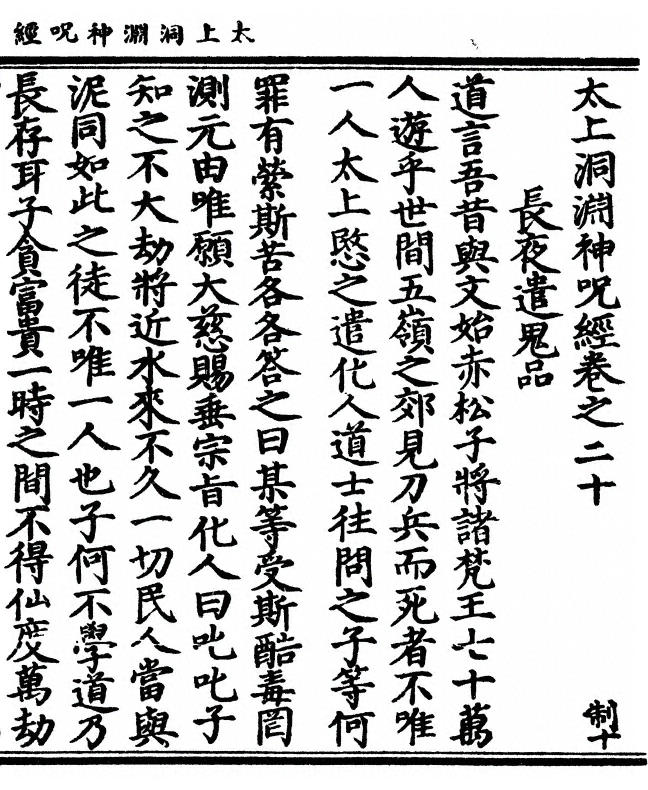 太上洞淵神呪經
太上洞淵神呪經卷之二十
制十
長夜遣鬼品
道言吾昔與文始赤松子將諸梵王七十萬
人遊乎世間五嶺之郊見刀兵而死者不唯
一人太上愍之遣化人道士往問之子等何
罪有縈斯苦各各答之曰某等受斯酷毒罔
測元由唯願大慈賜垂宗旨化人曰叱叱子
知之不大劫將近水來不久一切民人當與
泥同如此之徒不唯一人也子何不學道乃
長存耳子貪富貴一時之間不得仙度萬劫